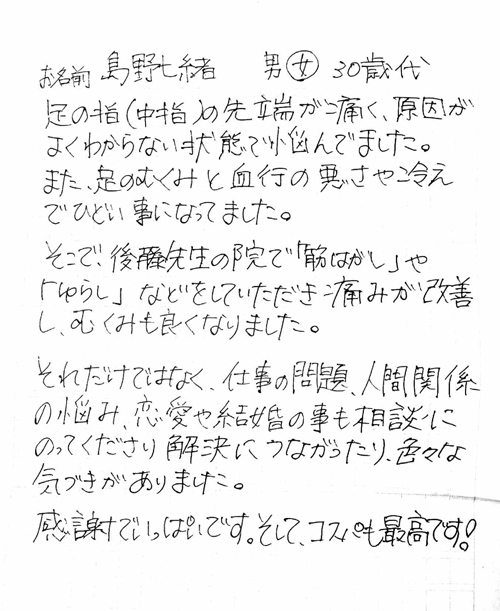 お名前 島野七緒 男 女 30歳代
足の指(中指)の先端が痛く、原因が
よくわからない状態で悩んでました。
また、足のむくみと血行の悪さや冷え
でひどい事になってました。
そこで、後藤先生の院で「筋はがし」や
「ゆらし」などをしていただき痛みが改善
し、むくみも良くなりました。
それだけではなく、仕事の問題、人間関係
の悩み、恋愛や結婚の事も相談に
のってくださり解決につながったり、色々な
気づきがありました。
感謝でいっぱいです。そして、コスパも最高です!